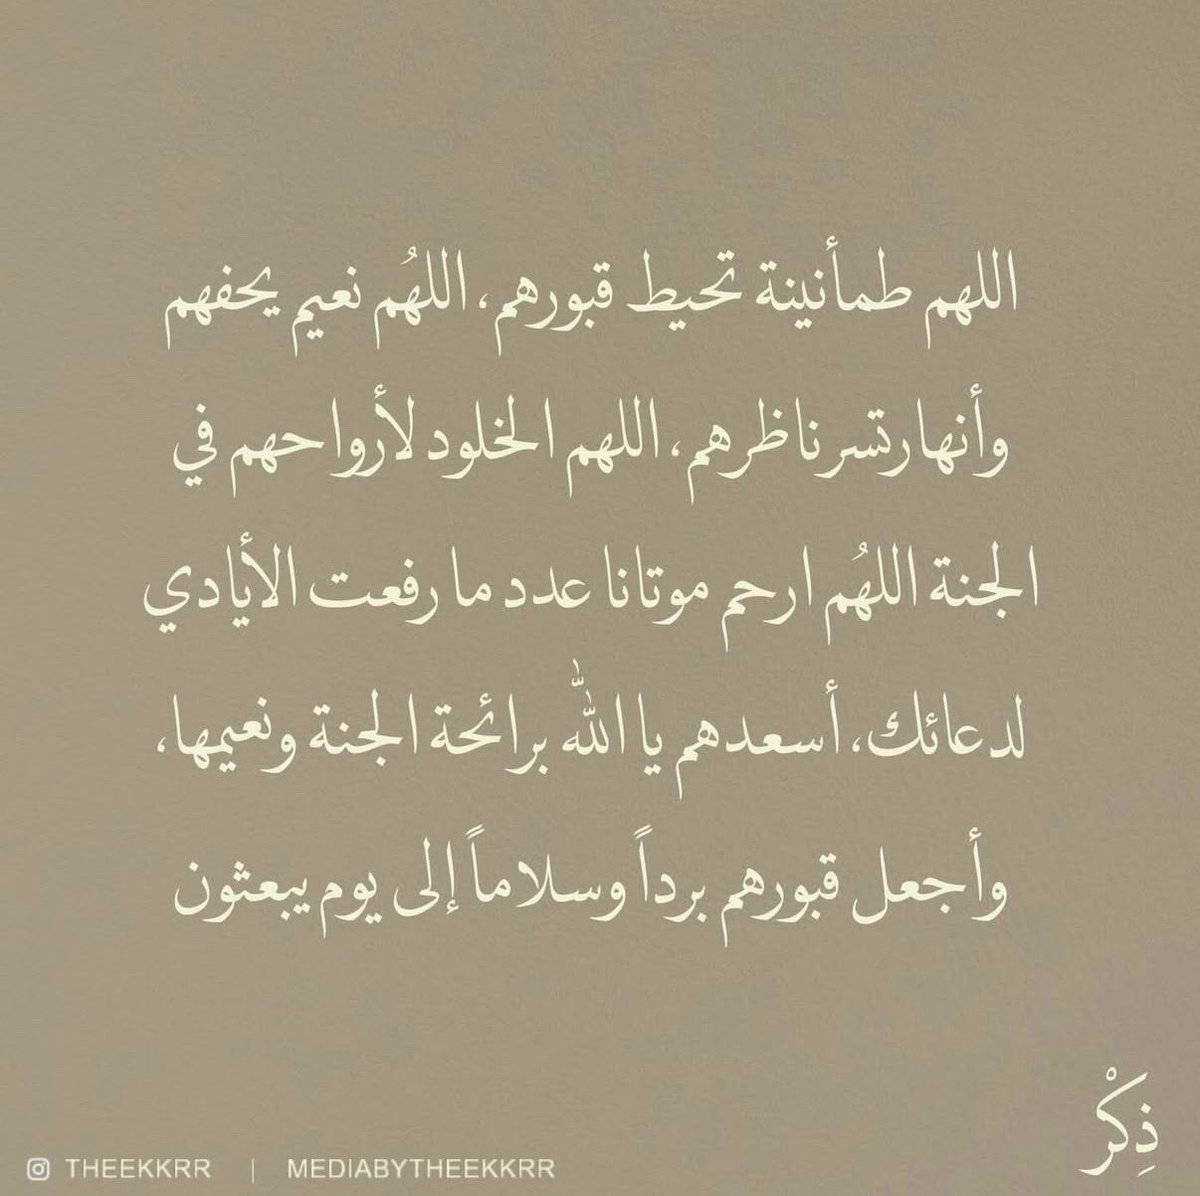 اللهم طمأنينة تحيط قبورهم، اللهُم نعيم يحفهم
وأنهار تسر ناظرهم، اللهم الخلود لأرواحهم في
الجنة اللهُم ارحم موتانا عدد ما رفعت الأيادي
لدعائك، أسعدهم يا الله برائحة الجنة ونعيمها،
وأجعل قبورهم برداً وسلاماً إلى يوم يبعثون
ذِكْر
THEEKKRR | MEDIABYTHEEKKRR